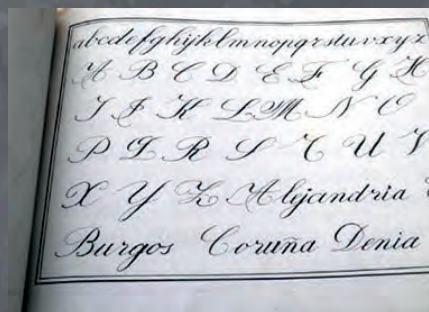 abcdefghijklmnopqrstuvxyz
A B C D E F G H
I J K L M N O
P Q R S T U V
X Y Z Alejandria
Burgos Coruña Denia